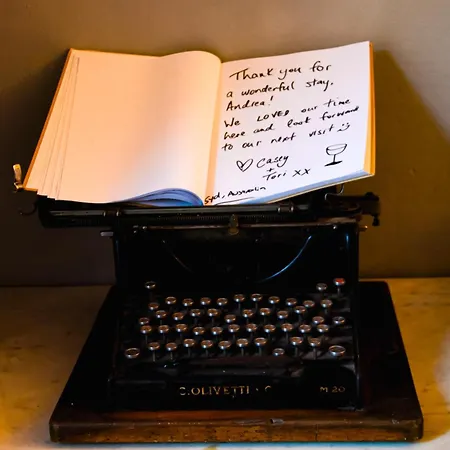 Thank you for
a wonderful stay,
Andrea!
We LOVED our time
here and look forward
to our next visit
Casey
+
Tori xx
Syd, Australia
C.OLIVETTI · C
M 20